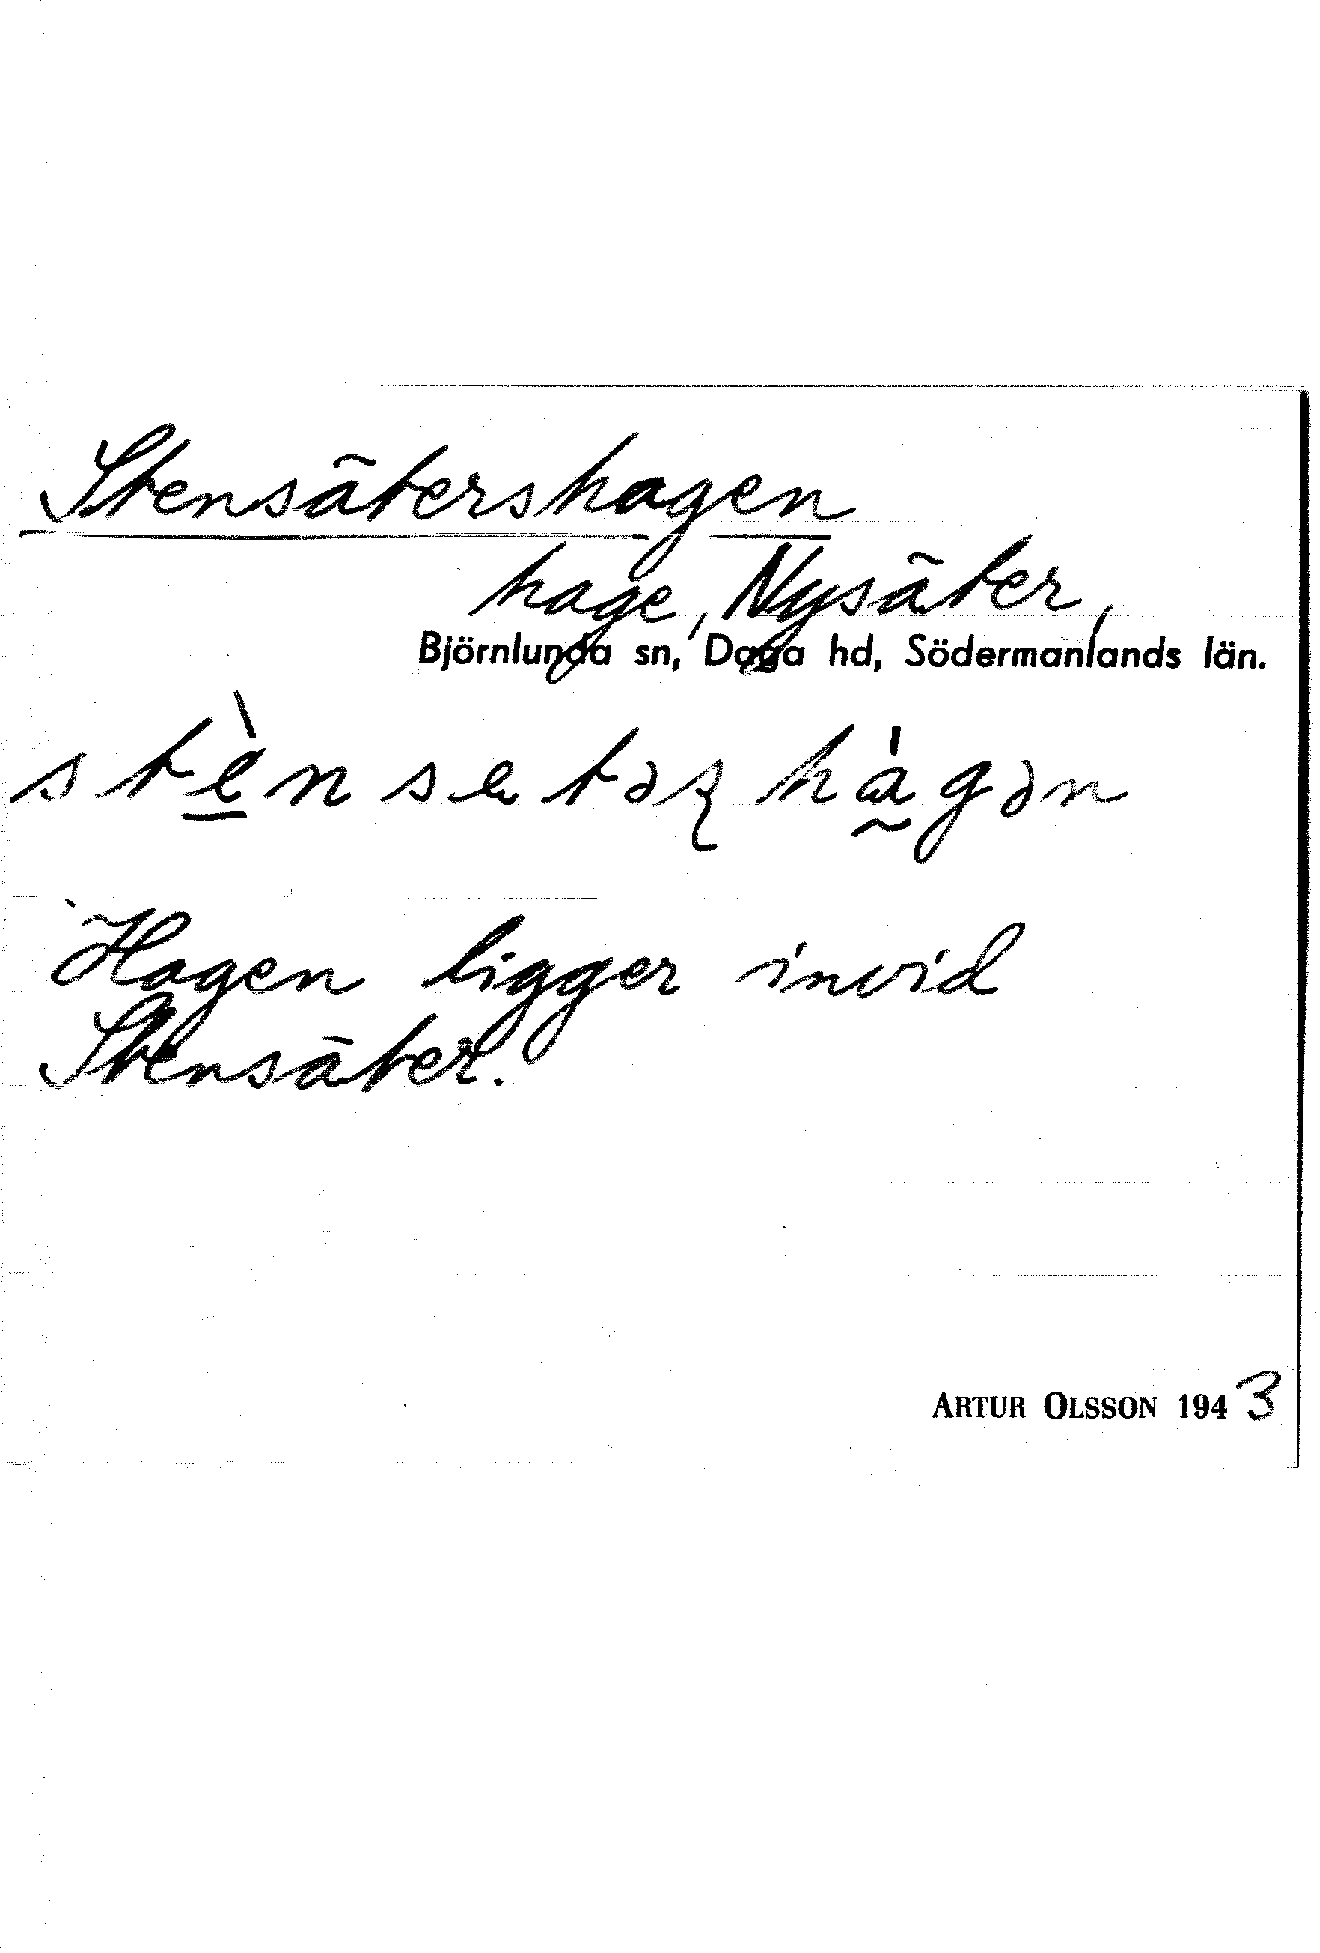 Stensätershagen
hage, Nysäter,
Björnlunda sn, Daga hd, Södermanlands län.
stè̱nsetəʂhà̰gən
Hagen ligger invid
Stensäter.
ARTUR OLSSON 1943